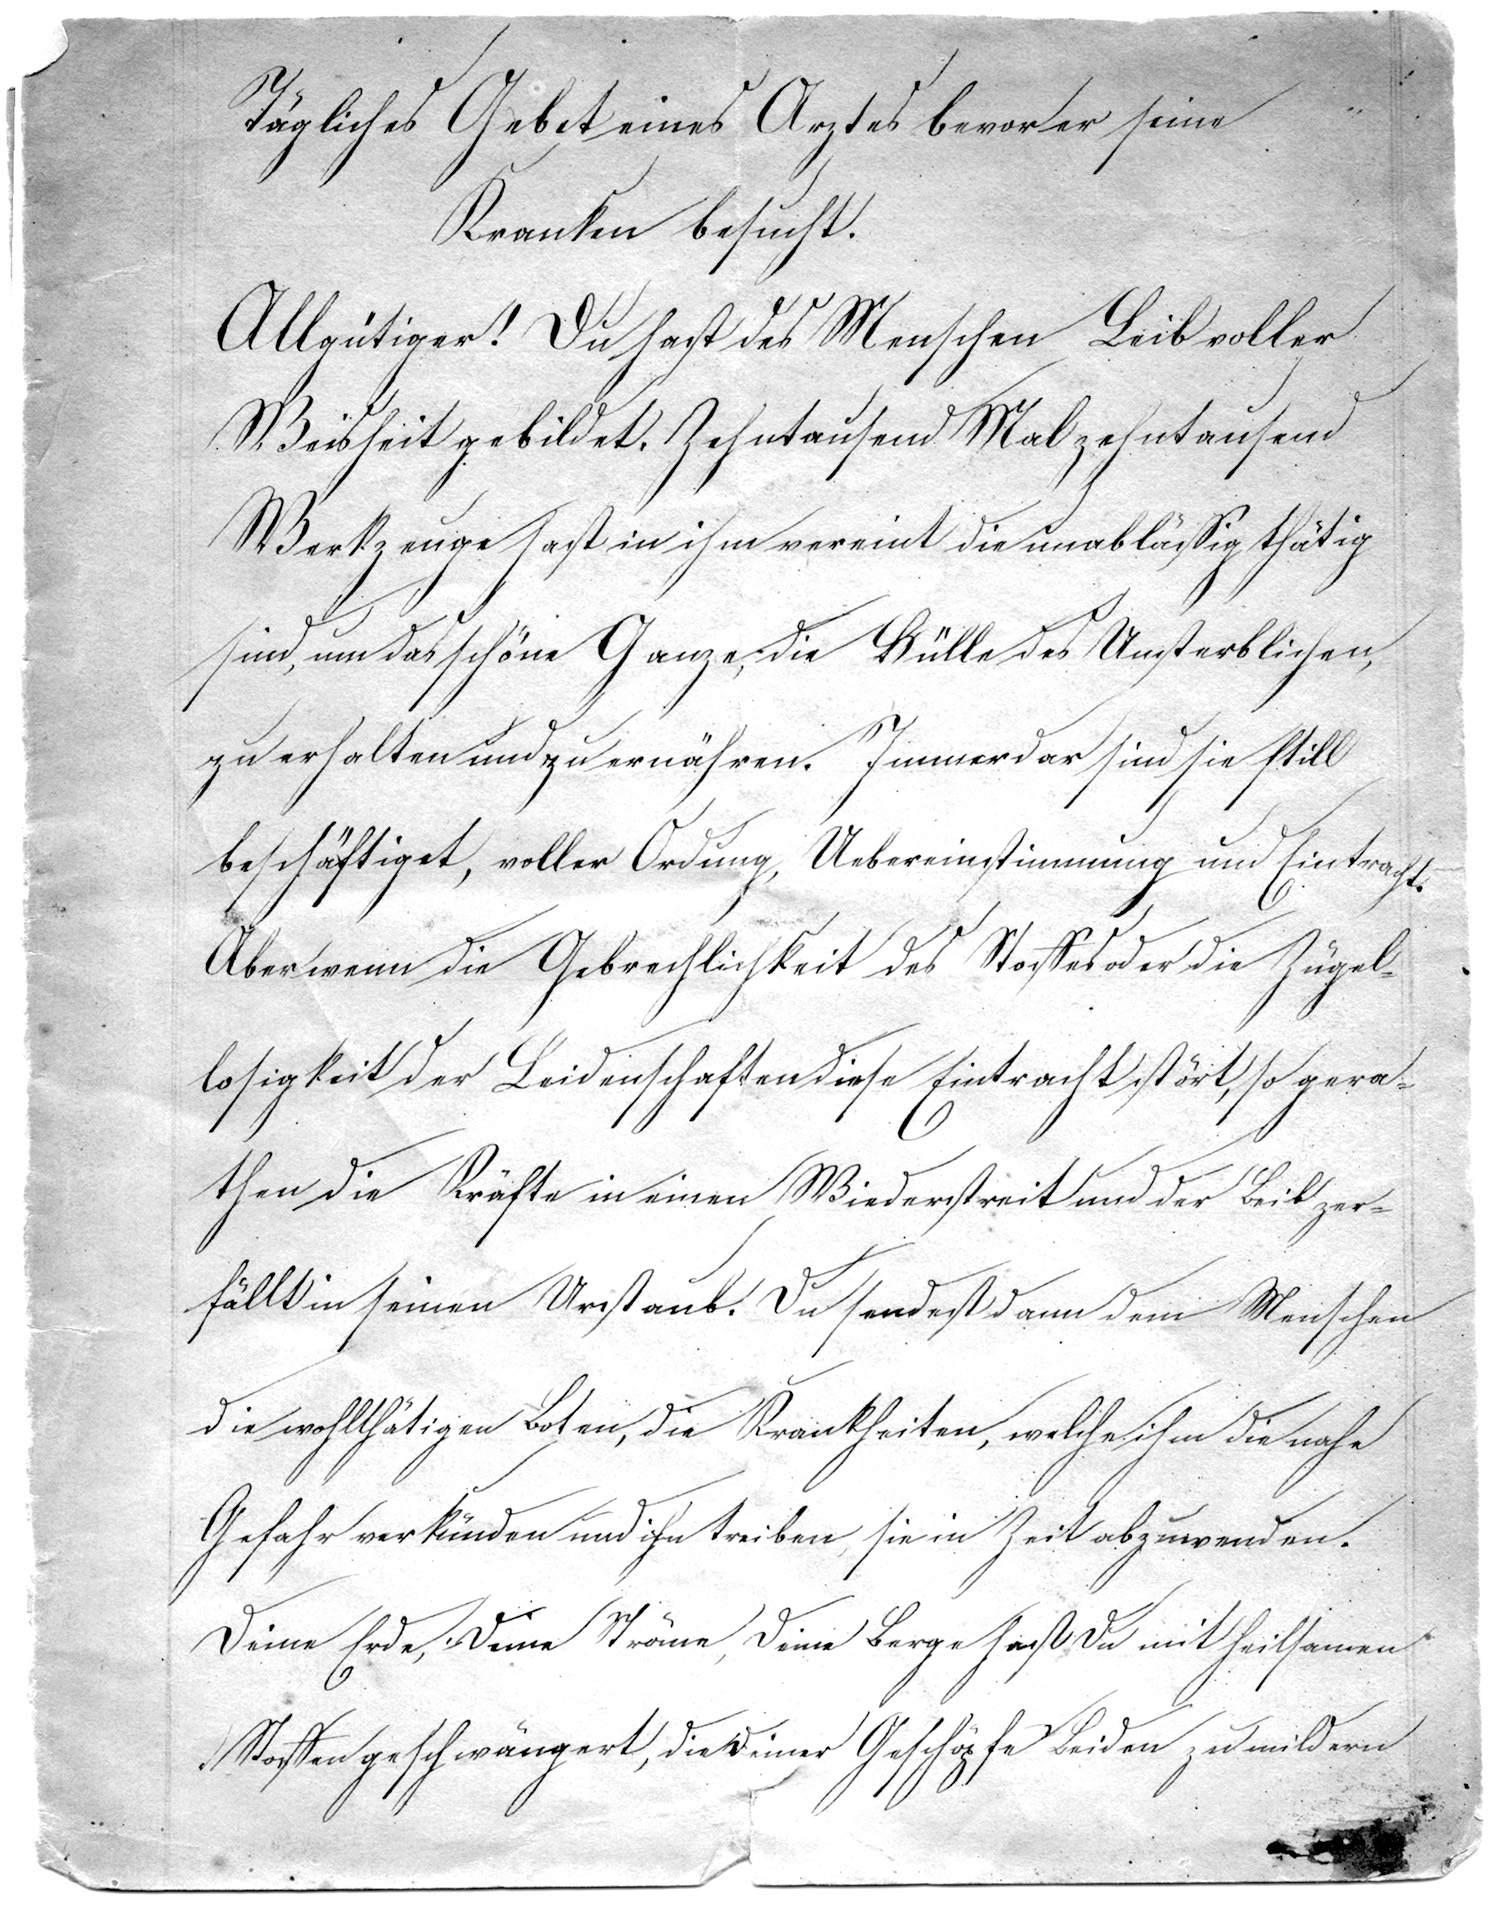 Tägliches Gebet eines Arztes bevor er seine
Kranken besucht.
Allgütiger! Du hast des Menschen Leib voller
Weisheit gebildet. Zehntausend Mal zehntausend
Werkzeuge hast in ihm vereint die unabläßig thätig
sind, um das schöne Ganze, die Hülle des Unsterblichen,
zu erhalten und zu ernähren. Immerdar sind sie still
beschäftiget, voller Ordung, Uebereinstimmung und Eintracht.
Aber wenn die Gebrechlichkeit des Stoffes oder die Zügel-
losigkeit der Leidenschaften diese Eintracht stört, so gera-
then die Kräfte in einen Wiederstreit und der Leib zer-
fällt in seinen Urstaub. Du sendest dann dem Menschen
die wohlthätigen Boten, die Krankheiten, welche ihm die nahe
Gefahr verkünden und ihn treiben, sie in Zeit abzuwenden.
Deine Erde, Deine Ströme, Deine Berge hast Du mit heilsamen
Stoffen geschwängert, die Deiner Geschöpfe Leiden zu mildern